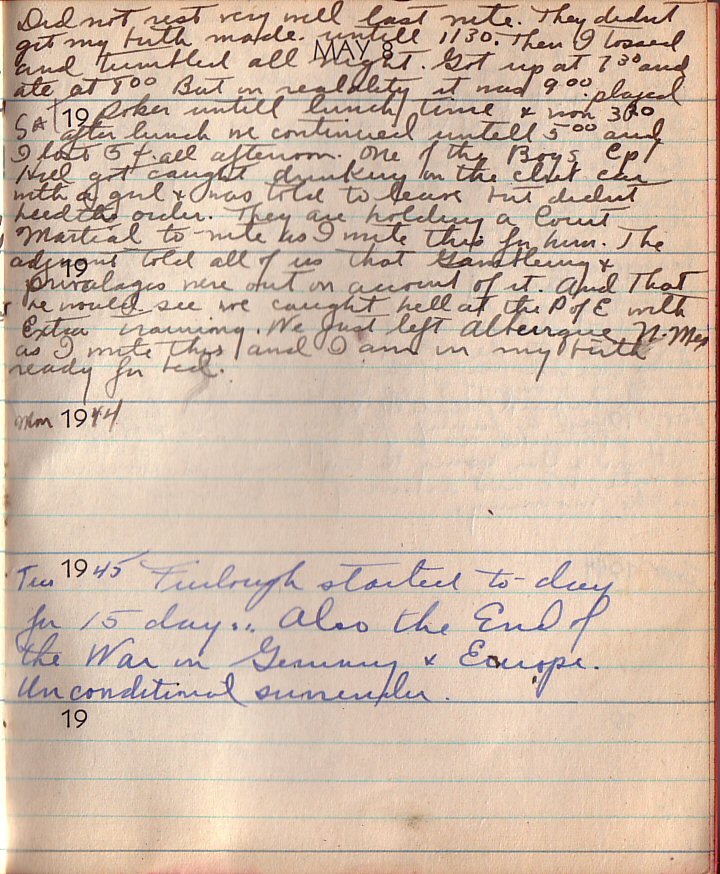 Did not rest very well last nite. They didnt
get my birth made. untill 1130. Then I tossed
MAY 8
and tumbled all night. Got up at 730 and
ate at 800 But in realality it was 900. played
19 Poker untill lunch time & won 300
SAT after lunch we continued untill 500 and
I lost 5 all afternoon. One of the Boys Cpl
got caught drinking in the club car
with a girl & was told to leave but didnt
heed the order. They are holding a Court
Martial to-nite as I write this for him. The
19
adjutant told all of us that Gambleing &
privalages were out on account of it. And that
he would see we caught hell at the P of E with
Extra training. We just left Alberqque N. Mex
as I write this and I am in my birth
ready for bed.
Mon 1944
Tues 1945 Furlough started to-day
for 15 days.. Also the End of
the War in Germany & Europe.
Unconditional surrender.
19